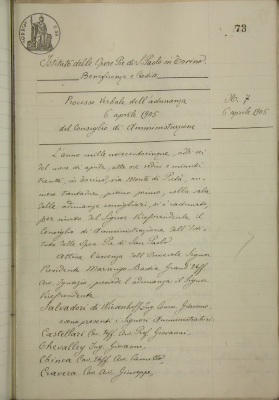 73
Istituto delle Opere Pie di S. Paolo in Torino
Beneficenza e Credito
Processo Verbale dell'adunanza
6 aprile 1905
del Consiglio di Amministrazione
N. 7
6 aprile 1905
L'anno mille novecentocinque, addì sei
del mese di aprile, alle ore sedici e minuti
trenta, in Torino, via Monte di Pietà, nu-
mero trentadue, primo piano, nella sala
delle adunanze consigliari, si è radunato,
per invito del Signor Vicepresidente il
Consiglio di Amministrazione dell'Isti-
tuto delle Opere Pie di San Paolo
Attesa l'assenza dell' Signor
Presidente Marsengo Bastia Grand' Uff.
Avv. Ignazio, presiede l'adunanza il Signor
Vicepresidente
Salvadori di Wiesenhoff Ing. Comm. Giacomo,
sono presenti i Signori Amministratori:
Castellari Cav. Uff. Avv. Prof. Giovanni.
Chevalley Ing. Giovanni.
Chinea Cav. Uff. Avv. Camillo
Cravera Cav. Avv. Giuseppe,